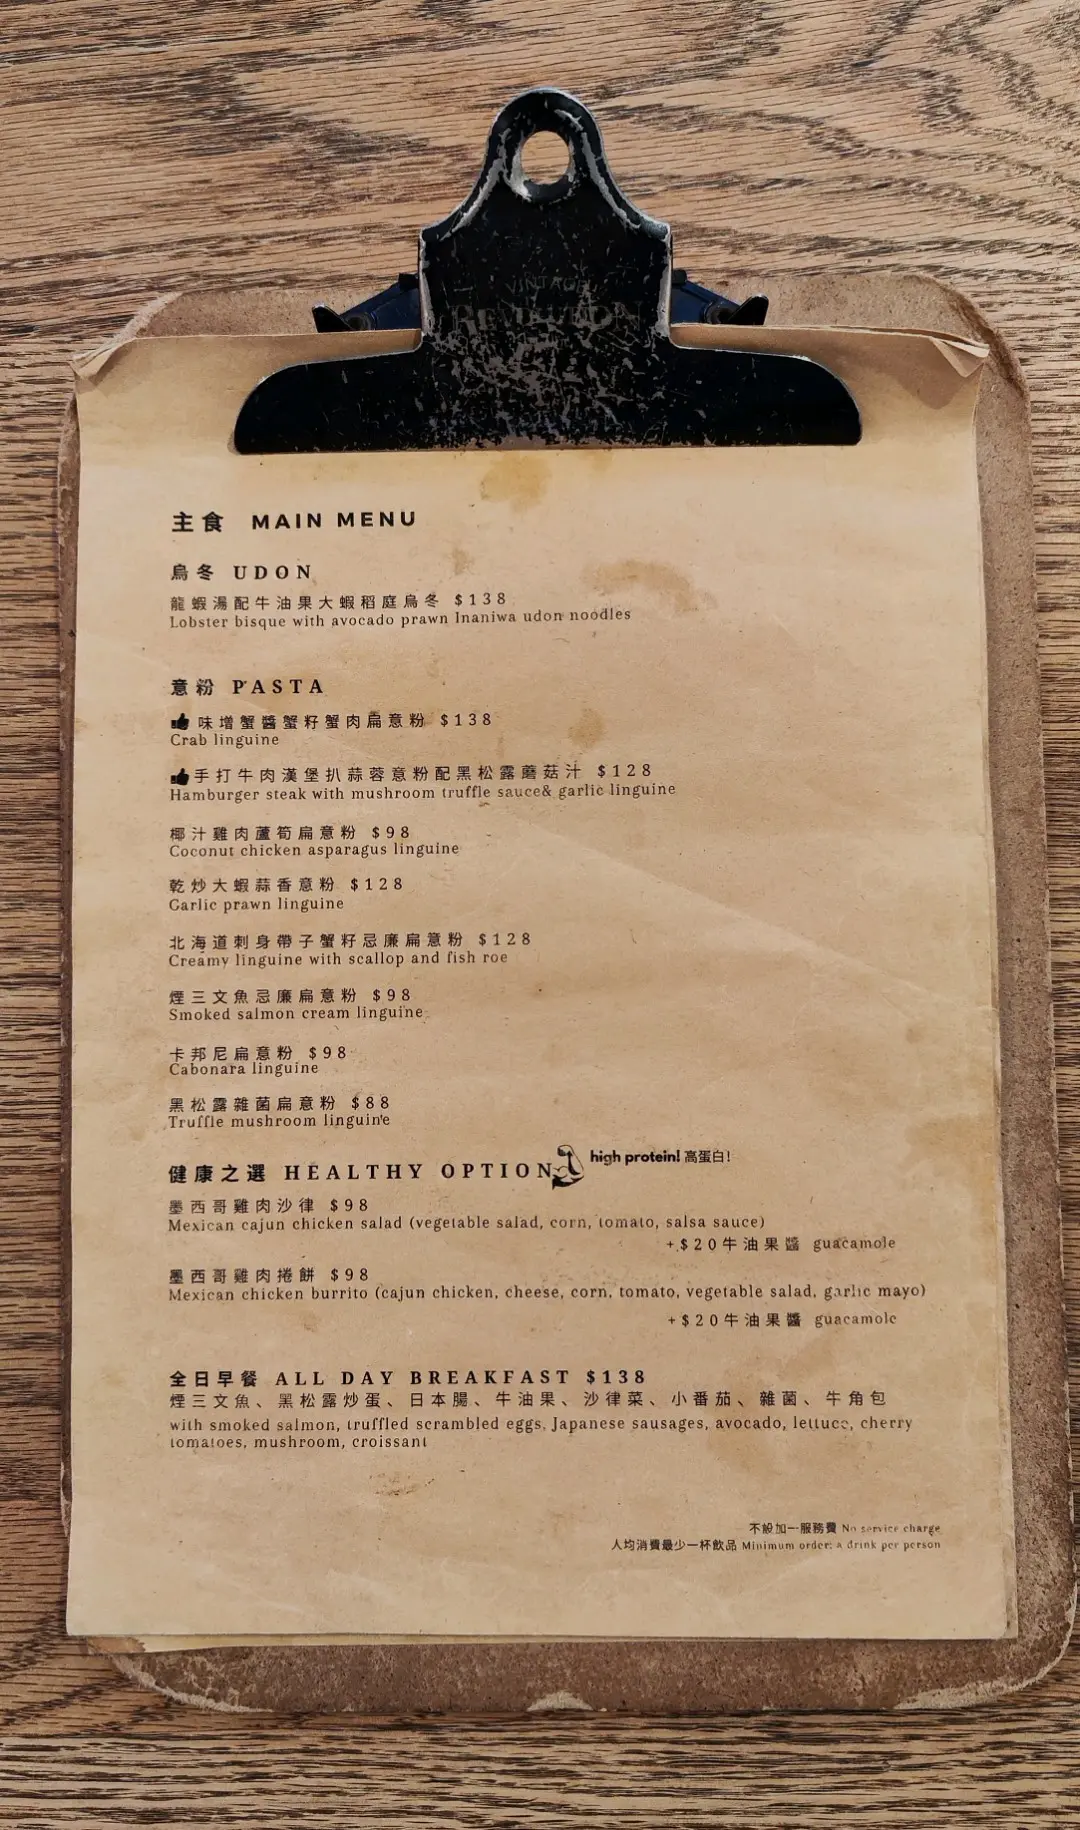 VINTAGE
REVOLUTION
主食 MAIN MENU
烏冬 UDON
龍蝦湯配牛油果大蝦稻庭烏冬 $138
Lobster bisque with avocado prawn Inaniwa udon noodles
意粉 PASTA
味增蟹醬蟹籽蟹肉扁意粉 $138
Crab linguine
手打牛肉漢堡扒蒜蓉意粉配黑松露蘑菇汁 $128
Hamburger steak with mushroom truffle sauce& garlic linguine
椰汁雞肉蘆筍扁意粉 $98
Coconut chicken asparagus linguine
乾炒大蝦蒜香意粉 $128
Garlic prawn linguine
北海道刺身帶子蟹籽忌廉扁意粉 $128
Creamy linguine with scallop and fish roe
煙三文魚忌廉扁意粉 $98
Smoked salmon cream linguine
卡邦尼扁意粉 $98
Cabonara linguine
黑松露雜菌扁意粉 $88
Truffle mushroom linguine
健康之選 HEALTHY OPTION high protein! 高蛋白!
墨西哥雞肉沙律 $98
Mexican cajun chicken salad (vegetable salad, corn, tomato, salsa sauce)
+$20牛油果醬 guacamole
墨西哥雞肉捲餅 $98
Mexican chicken burrito (cajun chicken, cheese, corn, tomato, vegetable salad, garlic mayo)
+$20牛油果醬 guacamole
全日早餐 ALL DAY BREAKFAST $138
煙三文魚、黑松露炒蛋、日本腸、牛油果、沙律菜、小番茄、雜菌、牛角包
with smoked salmon, truffled scrambled eggs, Japanese sausages, avocado, lettuce, cherry
tomatoes, mushroom, croissant
不設加一服務費 No service charge
人均消費最少一杯飲品 Minimum order: a drink per person